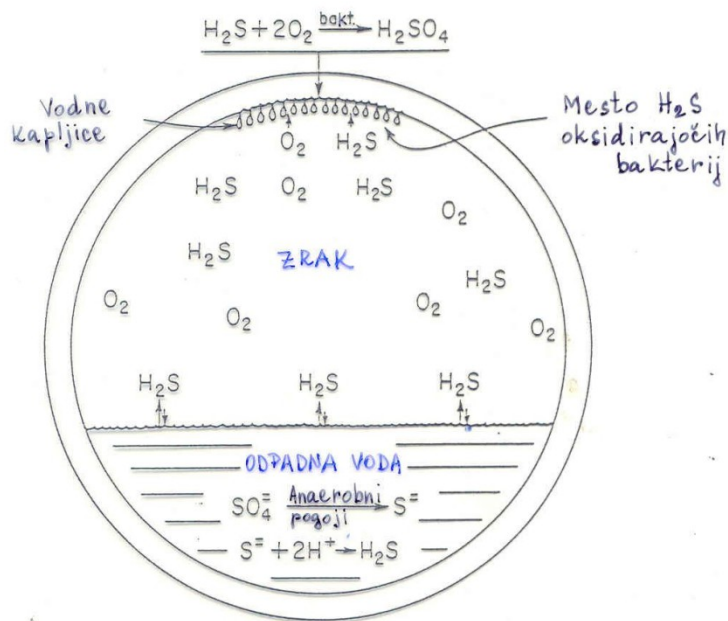 H₂S + 2O₂ bakt. → H₂SO₄
Vodne
kapljice
Mesto H₂S
oksidirajočih
bakterij
O₂ H₂S
H₂S O₂ H₂S
O₂
H₂S
ZRAK
H₂S
O₂ O₂ O₂ O₂
H₂S H₂S H₂S
ODPADNA VODA
SO₄⁼ Anaerobni pogoji → S⁼
S⁼ + 2H⁺ → H₂S